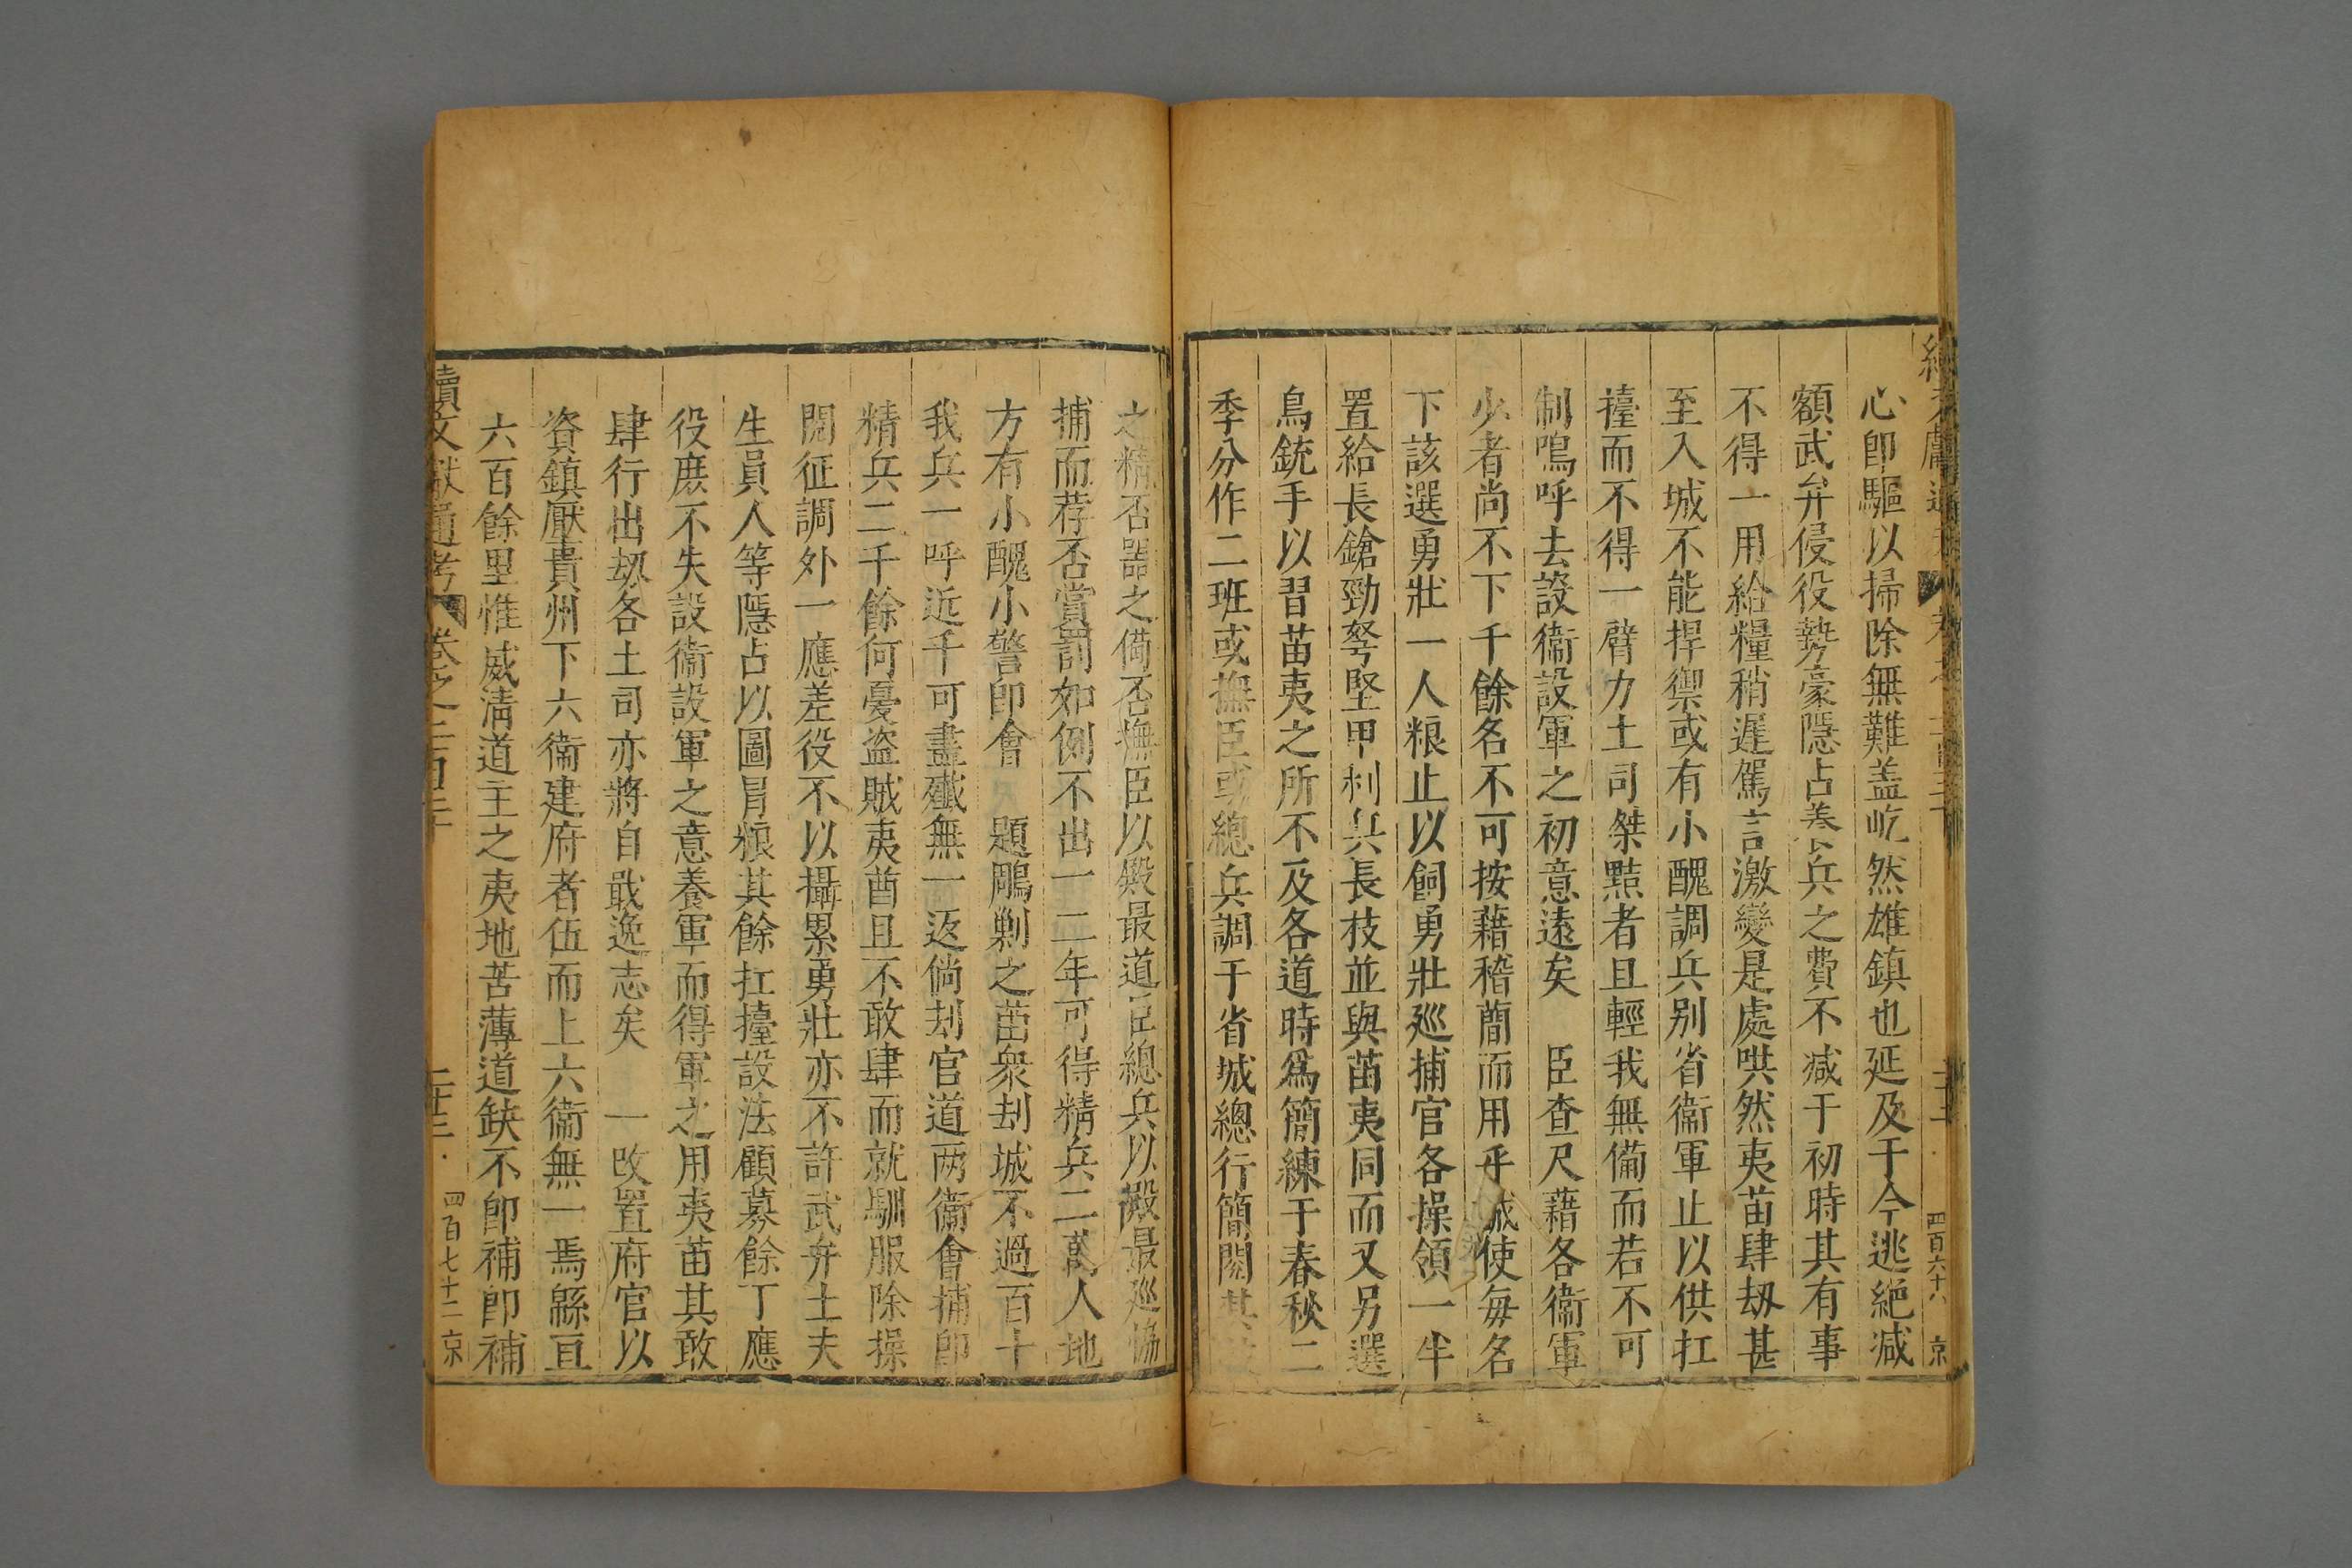 心即驅以掃除無難盖屹然雄鎮也延及于今逃絕减
額武弁侵役勢豪隱占養兵之費不减于初時其有事
不得一用給糧稍遲駕言激變是處哄然夷苗肆刼甚
至入城不能捍禦或有小醜調兵别省衞軍止以供扛
擡而不得一臂力土司桀黠者且輕我無備而若不可
制嗚呼去設衞設軍之初意遠矣　臣查尺藉各衞軍
少者尚不下千餘名不可按藉稽簡而用乎誠使毎名
下該選勇壯一人粮止以飼勇壯廵捕官各操領一半
置給長鎗勁弩堅甲利兵長枝並與苗夷同而又另選
鳥銃手以習苗夷之所不及各道時爲簡練于春秋二
季分作二班或撫臣或總兵調于省城總行簡閱其
之精否器之備否撫臣以殿最道臣總兵以殿最廵
捕而荐否賞罰如例不出一二年可得精兵二萬人地
方有小醜小警即會　題鵰剿之苗衆刦城不過百十
我兵一呼近千可盡殲無一返倘刦官道两衞會捕即
精兵二千餘何憂盗賊夷酋且不敢肆而就馴服除操
閱征調外一應差役不以攝累勇壯亦不許武弁士夫
生員人等隱占以圖冐粮其餘扛擡設法顧募餘丁應
役庶不失設衞設軍之意養軍而得軍之用夷苗其敢
肆行出刼各土司亦將自戢逸志矣　一改置府官以
資鎮壓貴州下六衞建府者伍而上六衞無一焉緜亘
六百餘里惟威清道主之夷地苦薄道缺不即補即補
續文獻通考　卷之二百三十　二十三　四百七十二　京
四百六十八　京